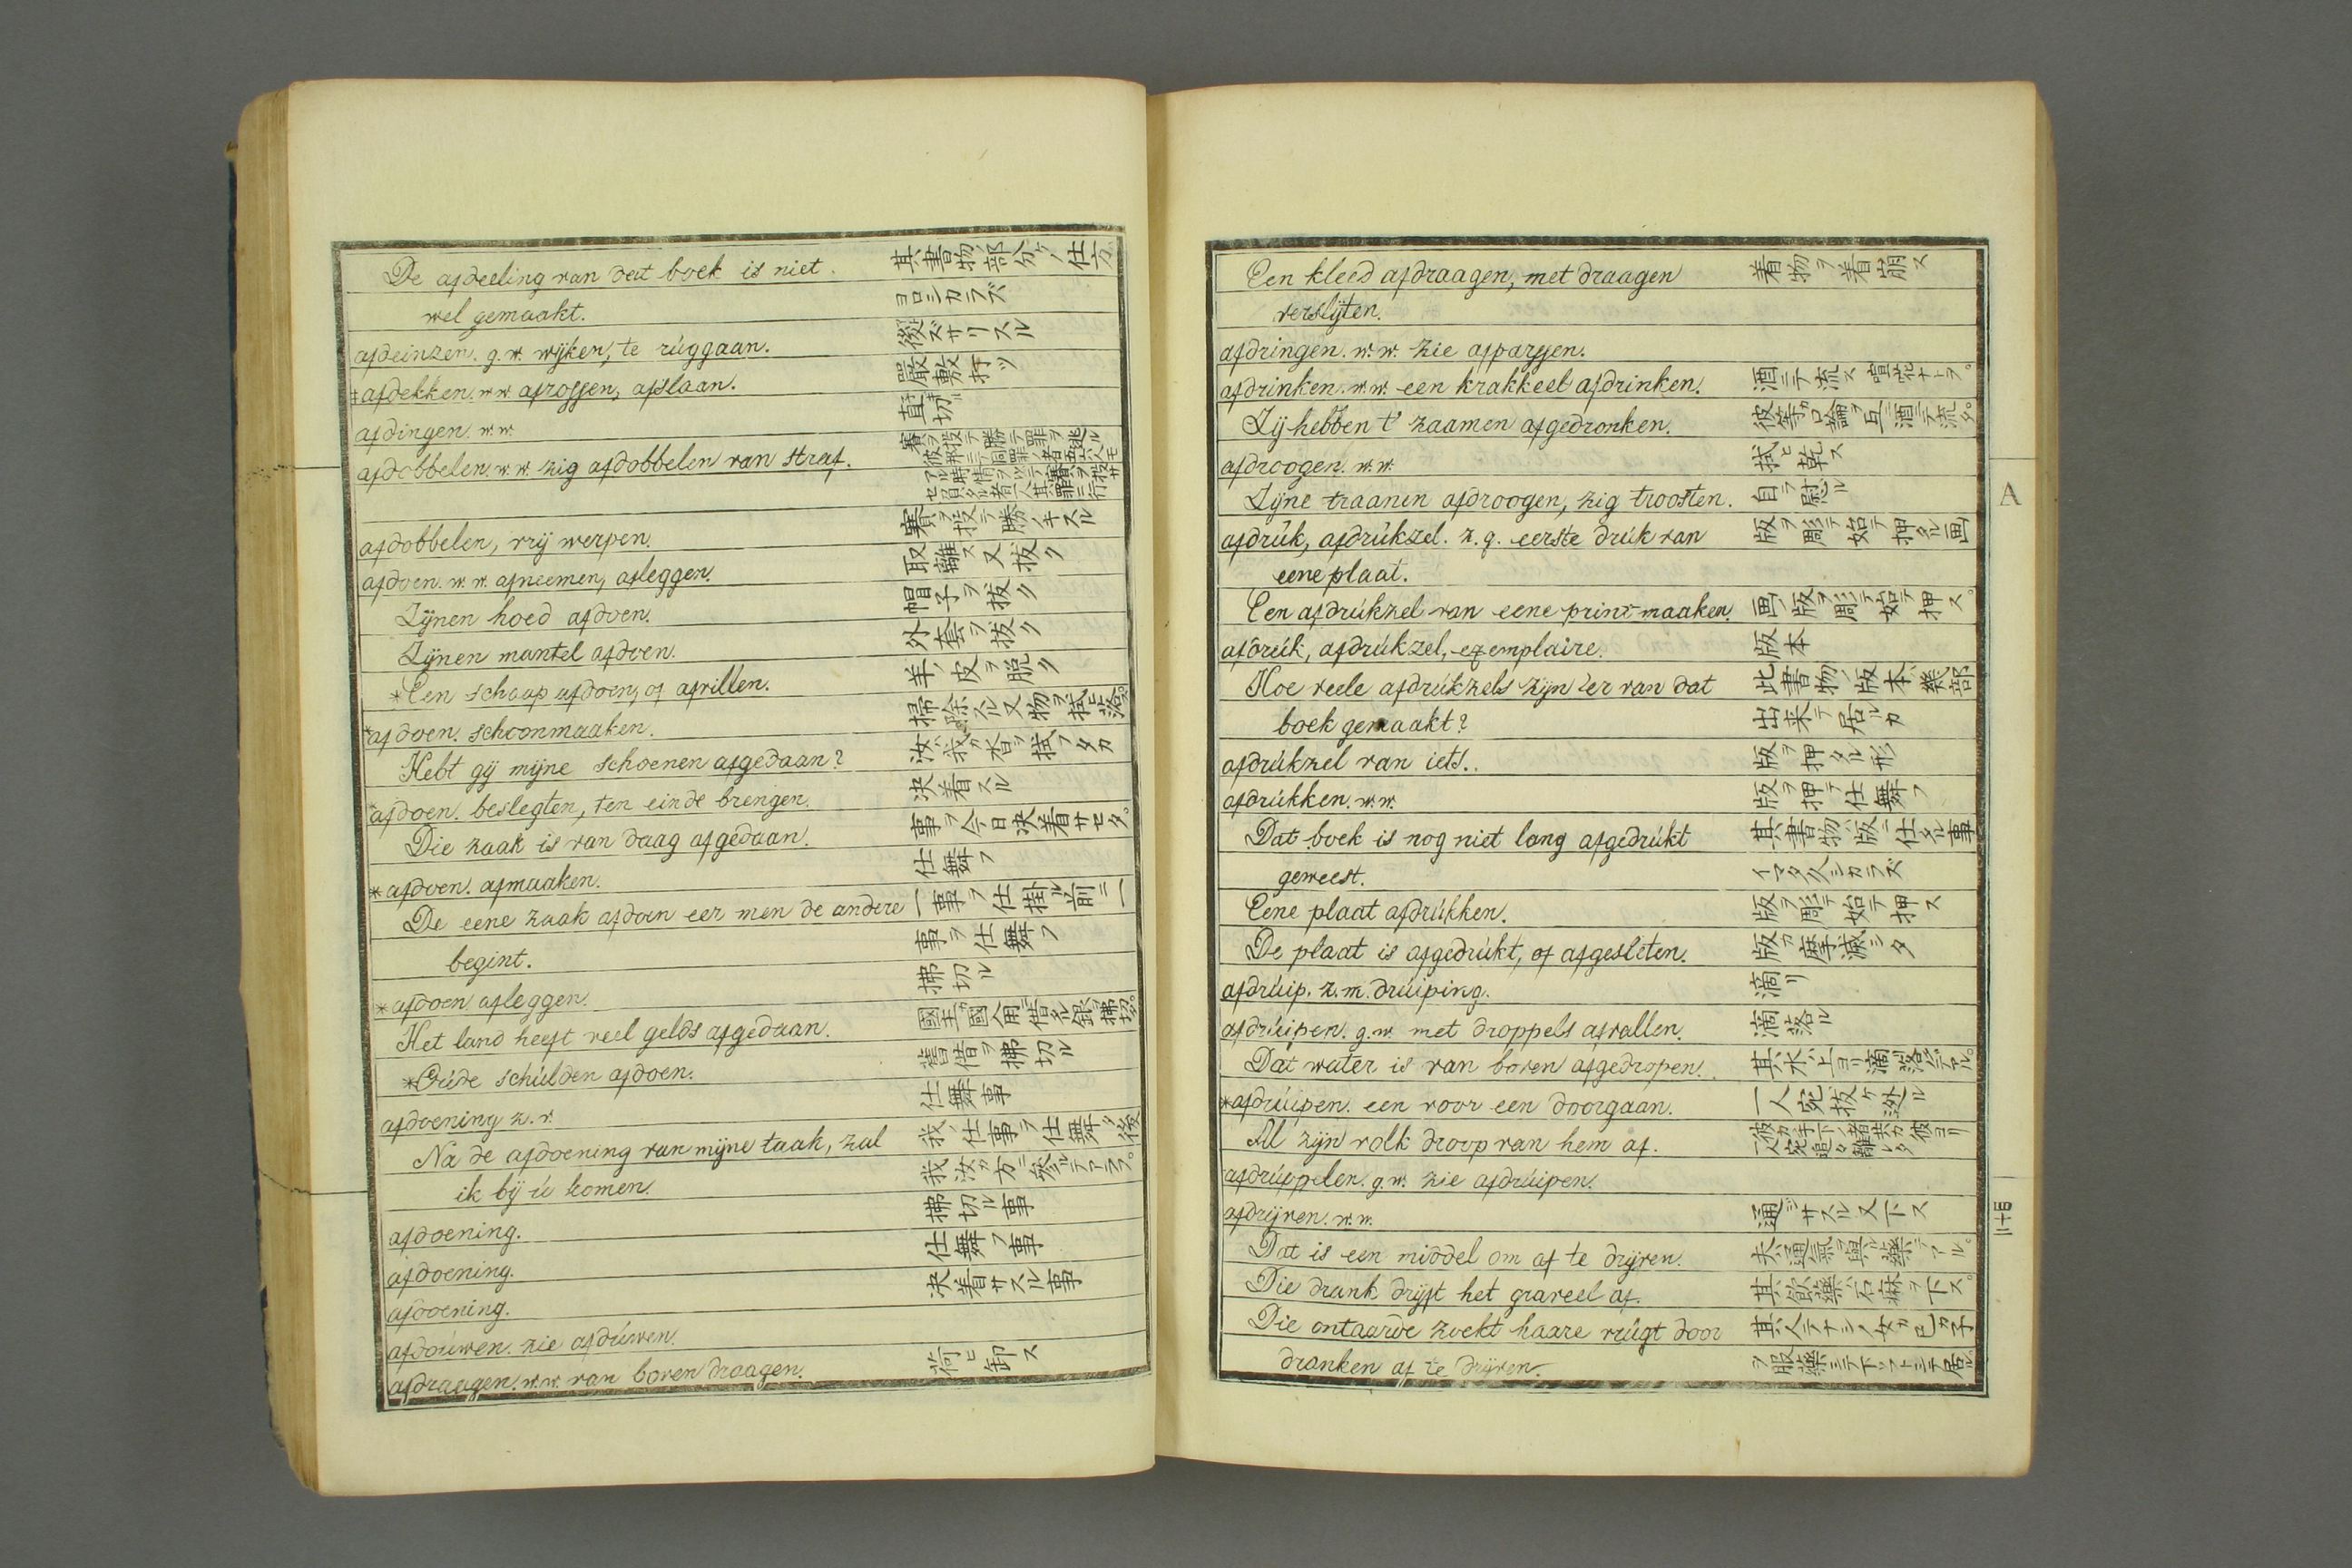 De afdeeling van dat boek is niet. 其書物ノ部分ケノ仕方ガ
wel gemaakt. ヨロシカラズ
afdeinzen. g.w. wijken, te rúggaan. 後ズサリスル
‡afdekken. w.w. afrossen, afslaan. 嚴敷打ツ
afdingen. w.w. 直切ル
afdobbelen. w.w. zig afdobbelen van straf.
afdobbelen, vrij werpen. 賽ヲ投テ勝ノキスル
afdoen. w.w. afneemen, afleggen. 取離ス又拔ク
Zijnen hoed afdoen. 帽子ヲ拔ク
Zijnen mantel afdoen. 外套ヲ拔ク
*Een schaap afdoen, of afvillen. 羊ノ皮ヲ脱ク
*afdoen. schoonmaaken. 掃除スル又物ヲ拭ヒ落ス。
Hebt gij mijne schoenen afgedaan? 汝ハ我ガ沓ヲ拭フタカ
*afdoen. beslegten, ten einde brengen. 决着スル
Die zaak is van daag afgedaan. 事ヲ今日决着サセタ。
*afdoen. afmaaken. 仕舞フ
De eene zaak afdoen eer men de andere 一事ヲ仕掛ル前ニ一
begint. 事ヲ仕舞フ
*afdoen afleggen. 拂切ル
Het land heeft veel gelds afgedaan. 國王ガ國用ニ借タル銀ヲ拂切タ。
*Oúde schúlden afdoen. 舊借ヲ拂切ル
afdoening z.v. 仕舞事
Na de afdoening van mijne taak, zal 我ガ仕事ヲ仕舞タ後
ik bij ú komen. 我汝ガ方ニ參ルデアラフ。
afdoening. 拂切ル事
afdoening. 仕舞フ事
afdoening. 决着サスル事
afdoúwen. zie afdúwen.
afdraagen. w.w. van boven draagen. 荷ヒ卸ス
Een kleed afdraagen, met draagen 着物ヲ着崩ス
verslijten.
afdringen. w.w. zie afpargen.
afdrinken. w.w. een krakkeel afdrinken. 酒ニテ流ス喧花ナトヲ。
Zij hebben t' zaamen afgedronken. 彼等ガ口論ヲ互ニ酒ニテ流タ。
afdroogen. w.w. 拭ヒ乾ス
Zijne traanen afdroogen, zig troosten. 自ラ慰ル
afdrúk, afdrúkzel. z.g. eerste drúk van 版ヲ彫テ始テ押タル画
eene plaat.
Een afdrúkzel van eene print maaken. 画ノ版ヲ彫テ始テ押ス。
afdrúk, afdrúkzel, exemplaire. 版本
Hoe veele afdrúkzels zijn 'er van dat 此書物ノ版本ハ幾部
boek gemaakt? 出来テ居ルカ
afdrúkzel van iets.. 版ヲ押タル形
afdrúkken. w.w. 版ヲ押テ仕舞フ
Dat boek is nog niet lang afgedrúkt 其書物ハ版ニ仕タル事
geweest. イマタ久シカラズ
Eene plaat afdrúkken. 版ヲ彫テ始テ押ス
De plaat is afgedrúkt, of afgesleten. 版ガ摩滅シタ
afdrúip. z.m. drúiping. 滴リ
afdrúipen. g.w. met droppels afvallen. 滴落ル
Dat water is van boven afgedropen. 其水ハ上ヨリ滴落タデアル。
*afdrúipen. een voor een doorgaan. 一人宛拔ケ迯ル
Al zijn volk droop van hem af. 彼カ手下ノ者共ガ彼ヨリ一人宛追々離レタ
afdrúppelen. g.w. zie afdrúipen.
afdrijven. w.w. 通ジサスル又下ス
Dat is een middel om af te drijven.
Die drank drijft het graveel af. 其飲藥ハ石麻ヲ下ス。
Die ontaarde zoekt haare vrúgt door 其人デナシノ女ガ已ガ子
dranken af te drijven. ヲ服藥ニテ下ソフトシテ居ル。
A